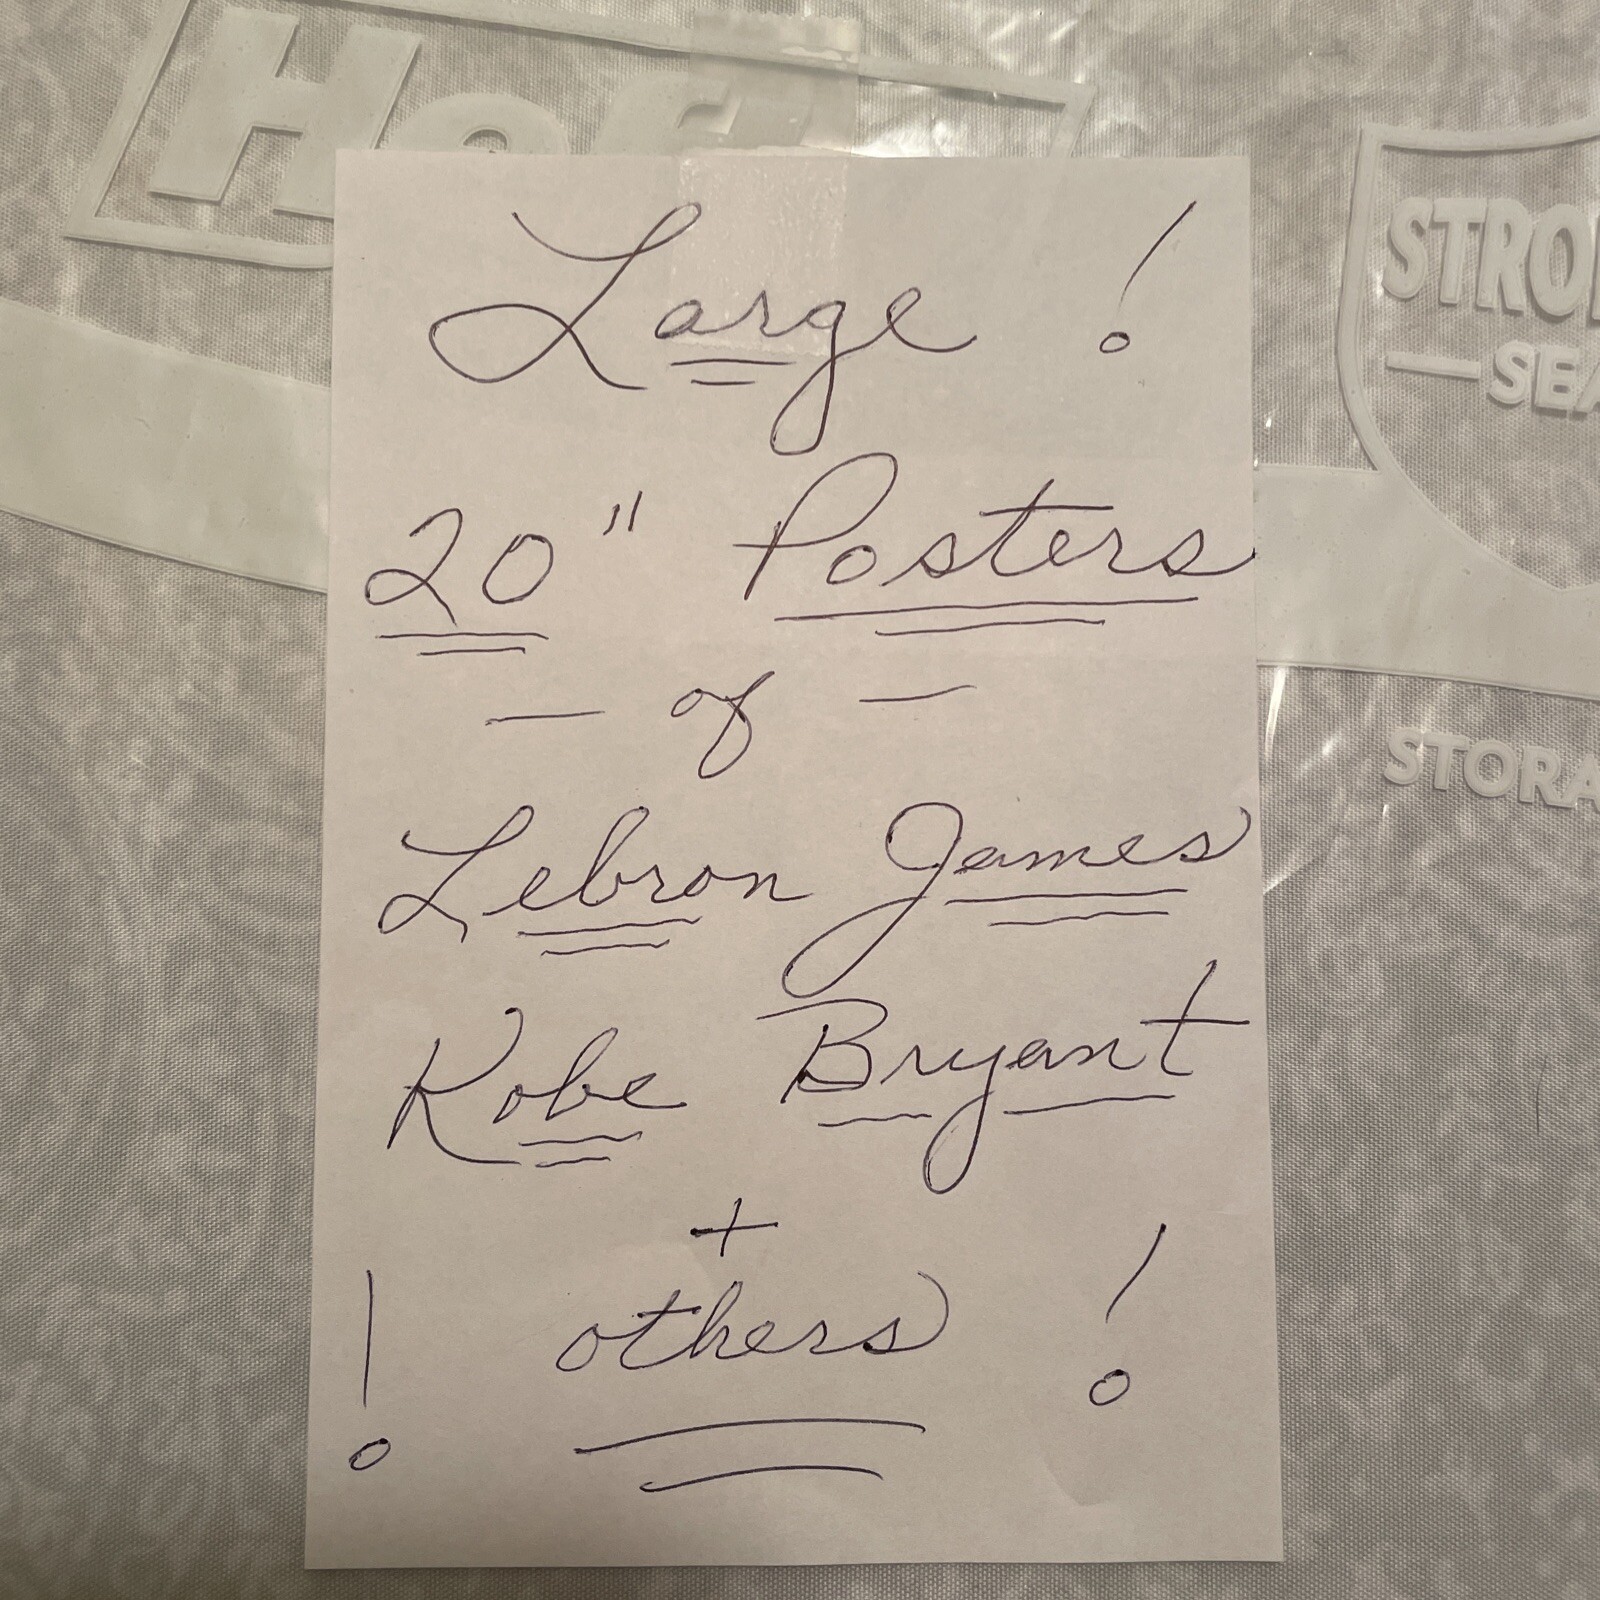 Hef
STRO
SEA
STORA
Large !
20" Posters
— of —
Lebron James
Kobe Bryant
+
! others !